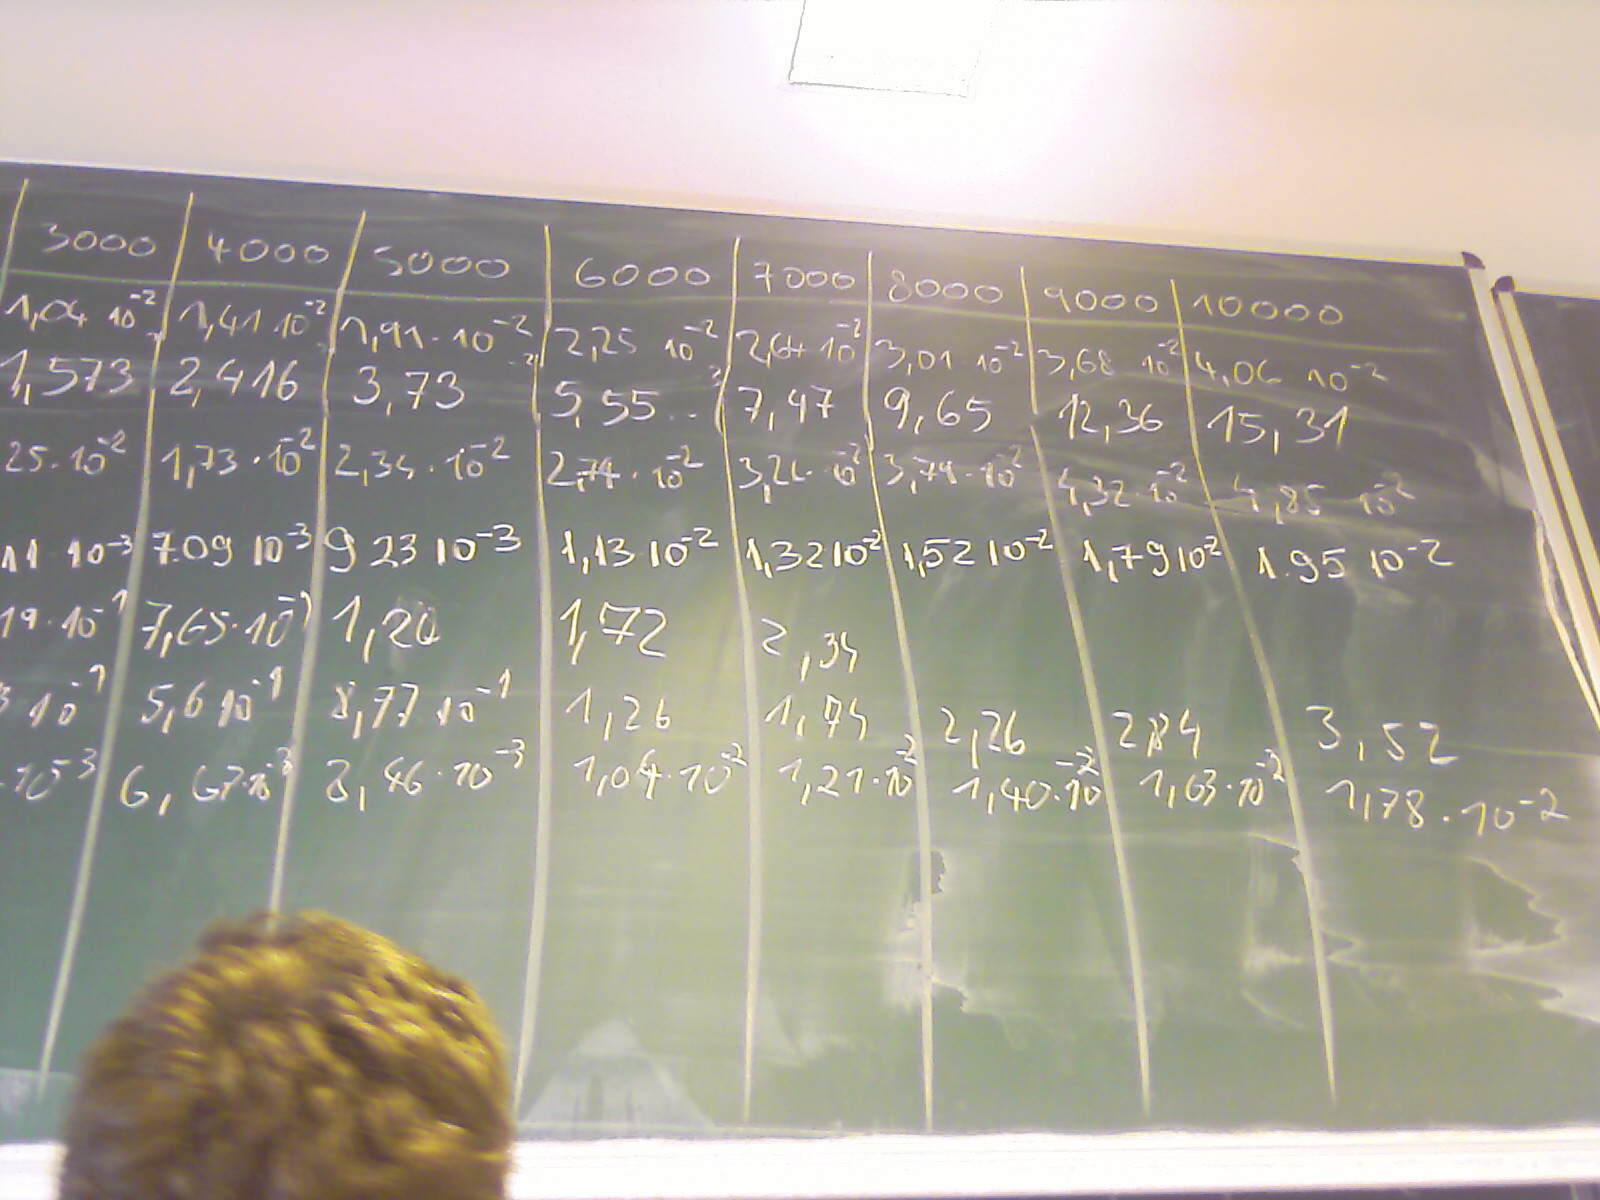 3000 4000 5000 6000 7000 8000 9000 10000
1,04 10⁻² 1,41 10⁻² 1,91·10⁻² 2,25 10⁻² 2,64 10⁻² 3,01·10⁻² 3,68 10⁻² 4,06 10⁻²
1,573 2,416 3,73 5,55 7,47 9,65 12,36 15,31
25·10⁻² 1,73·10⁻² 2,34·10⁻² 2,74·10⁻² 3,24·10⁻² 3,74·10⁻² 4,32·10⁻² 4,85 10⁻²
11 10⁻³ 7.09 10⁻³ 9 23 10⁻³ 1,13 10⁻² 1,32 10⁻² 1,52 10⁻² 1,79 10² 1.95 10⁻²
19·10⁻¹ 7,65·10⁻¹ 1,20 1,72 2,34
10⁻¹ 5,6 10⁻¹ 8,77 10⁻¹ 1,26 1,74 2,26 2,84 3,52
·10⁻³ 6,67·10⁻³ 8,46·10⁻³ 1,04·10⁻² 1,21·10⁻² 1,40·10⁻² 1,63·10⁻² 1,78·10⁻²